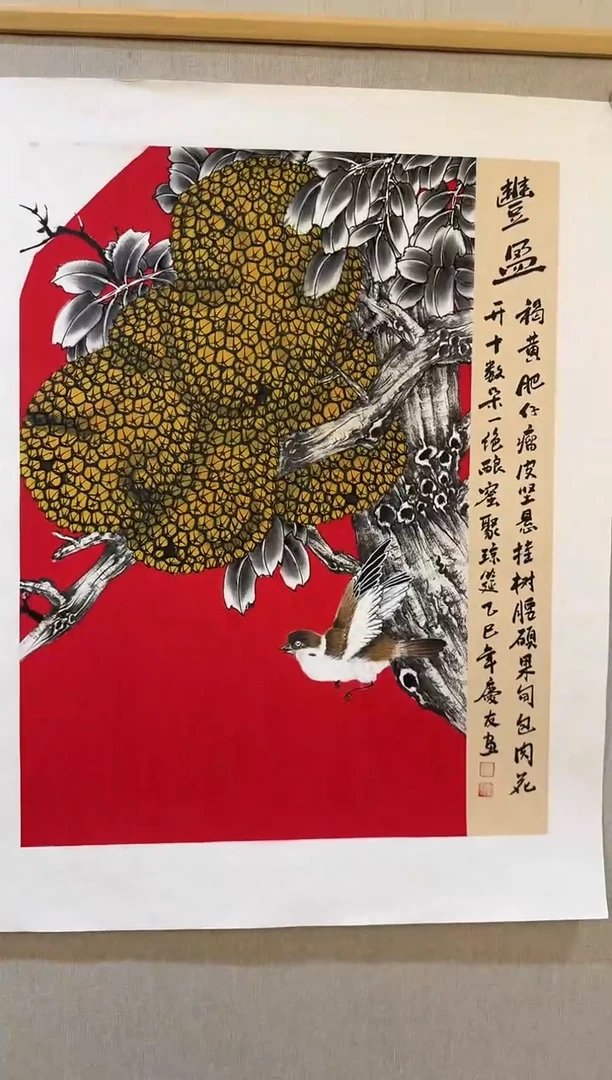 豐盈
褐黄肥仔瘤皮坚悬挂树腰硕果旬包肉花
开十数朵一绝酿蜜聚琼筵乙巳年慶友画